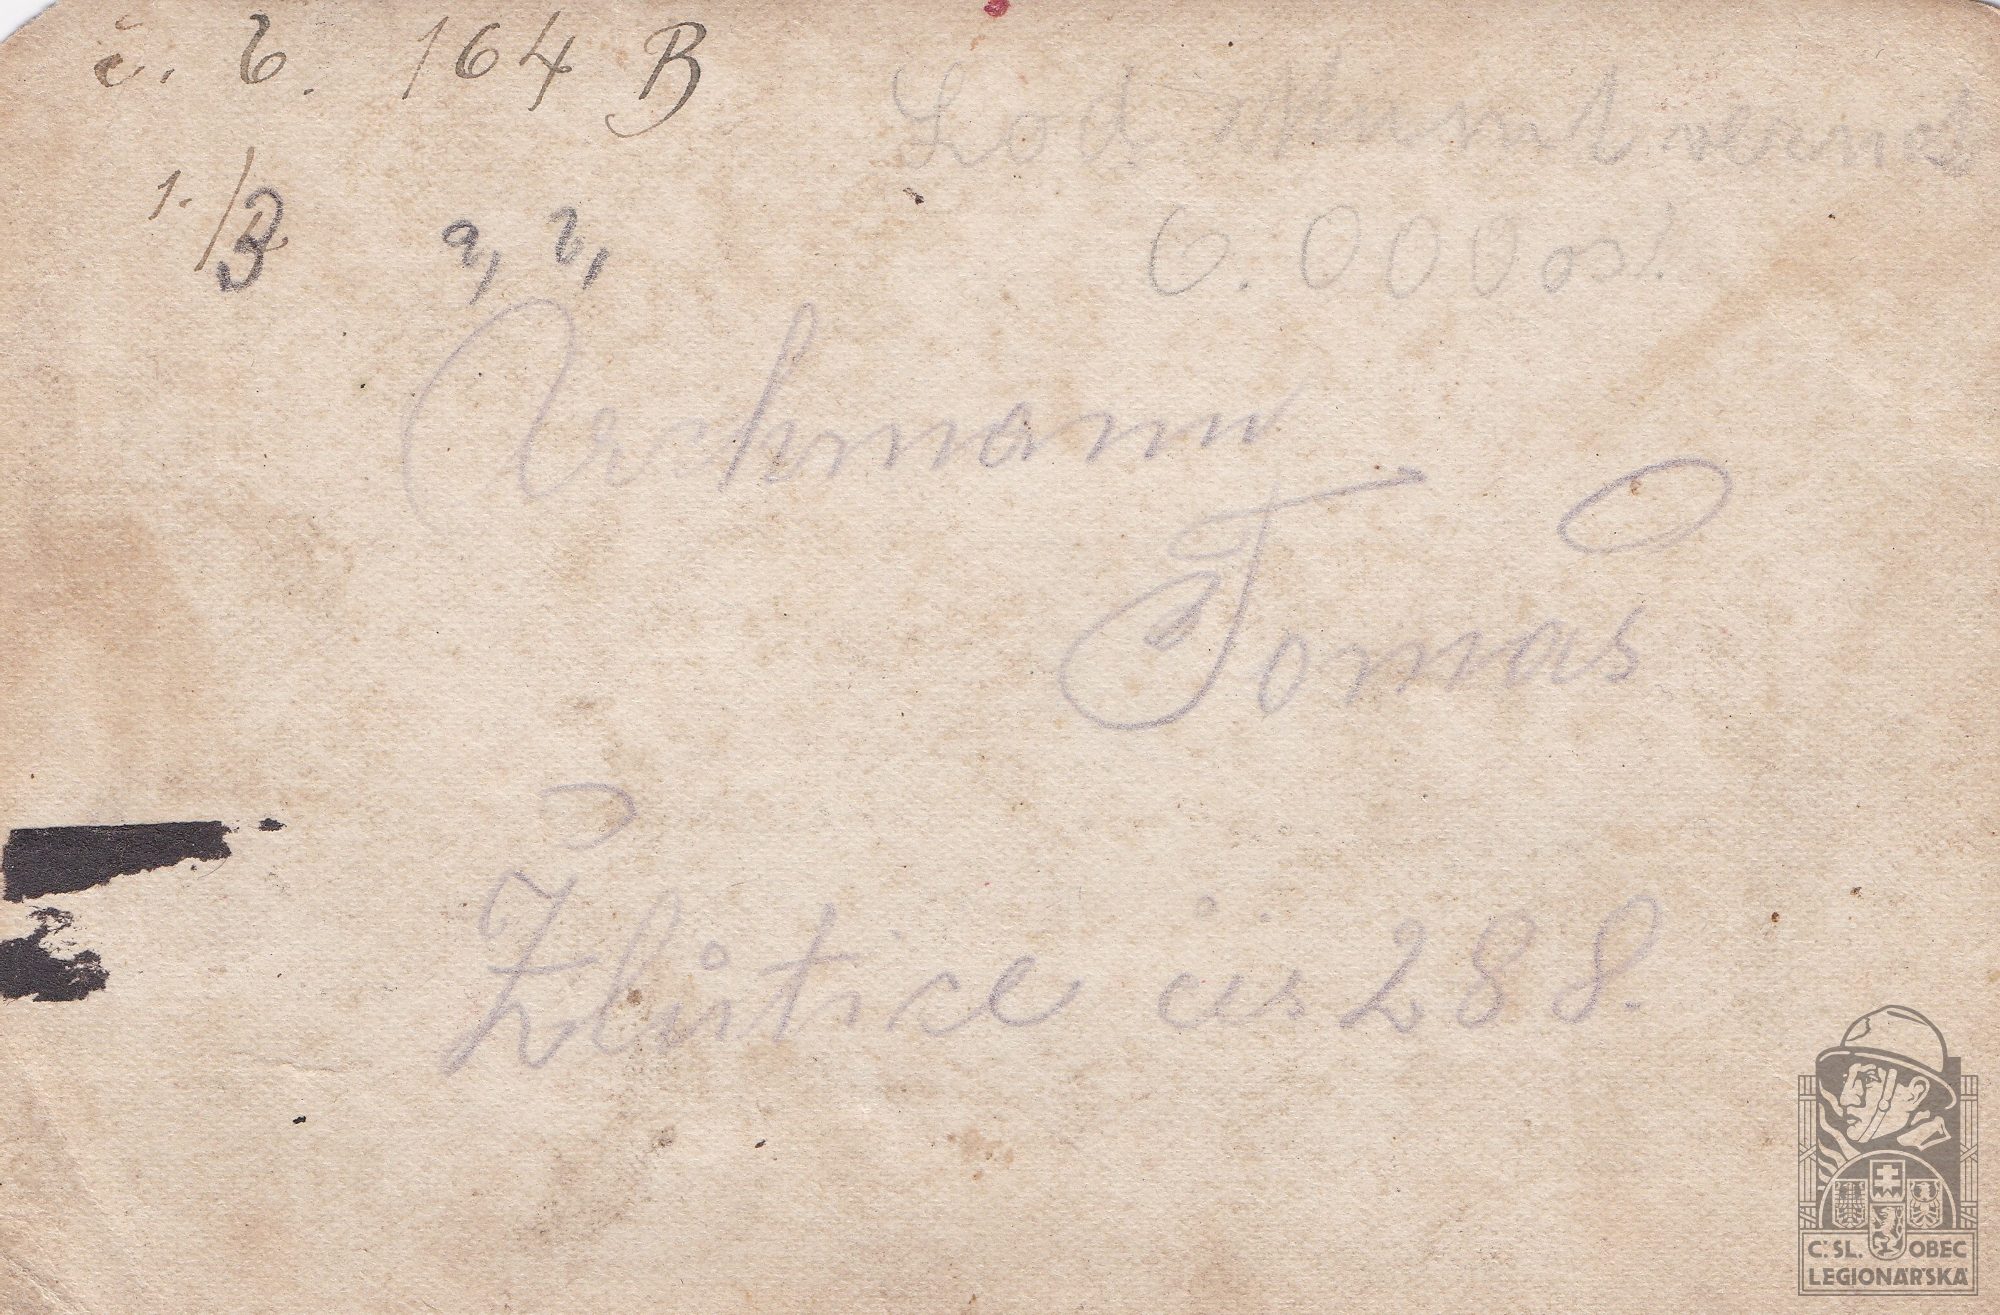 č. b. 164 B
Loď Mount vernet
1./B a, b,
6.000 os!
Urchmann
Tomáš
Žlutice čís 288.
Č.SL. OBEC
LEGIONÁŘSKÁ